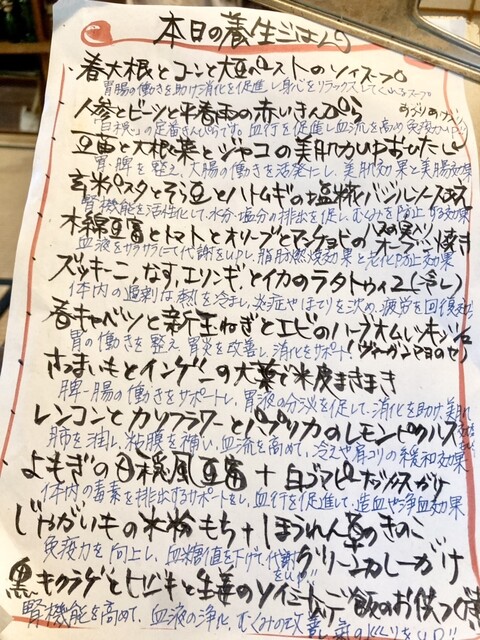 本日の養生ごはん
春大根とコーンと大豆ペーストのソイスープ
胃腸の働きを助け消化を促進し身心をリラックスしてくれるスープ
人参とビーツと平春雨の赤いきんぴら
「自根」の定番きんぴらです。血行を促進し血流を高め免疫力up
豆苗と大根葉とジャコの美肌かいおひたし
胃脾を整え、大腸の働きを活発にし、美肌効果と美腸効果
玄米パスタとそら豆とハトムギの塩糀バジルソース
腎機能を活性化して、水分塩分の排出を促し、むくみを防止する効果
木綿豆腐とトマトとオリーブとアンチョビのオーブン焼き
血液をサラサラにして代謝をupし、脂肪燃焼効果と老化防止効果
ズッキーニ、なす、エリンギ、とイカのラタトゥイユ(冷し)
体内の過剰な熱を冷まし、炎症やほてりを沈め、疲労を回復
春キャベツと新玉ねぎとエビのハーブオムレツキッシュ
胃の働きを整え胃炎を改善し、消化をサポート(ヴィーガンマヨのせ)
さつまいもとインゲンの大葉で米皮まきまき
脾・腸の働きをサポートし、胃液の分泌を促して、消化を助け、美肌
レンコンとカリフラワーとパプリカのレモンピクルス
肺を潤し、粘膜を補い、血流を高めて、冷えや肩コリの緩和効果
よもぎの白和風豆腐+白ゴマピーナッツだれがけ
体内の毒素を排出するサポートをし、血行を促進して、造血や浄血効果
じゃがいもの米粉もち+ほうれん草のきのこ
グリーンカレーがけ
免疫力を向上し、血糖値を下げて代謝をup!!
黒キクラゲとヒジキと生姜のソイミートデ飯のお供つくだ煮
腎機能を高めて、血液の浄化、むくみの改善